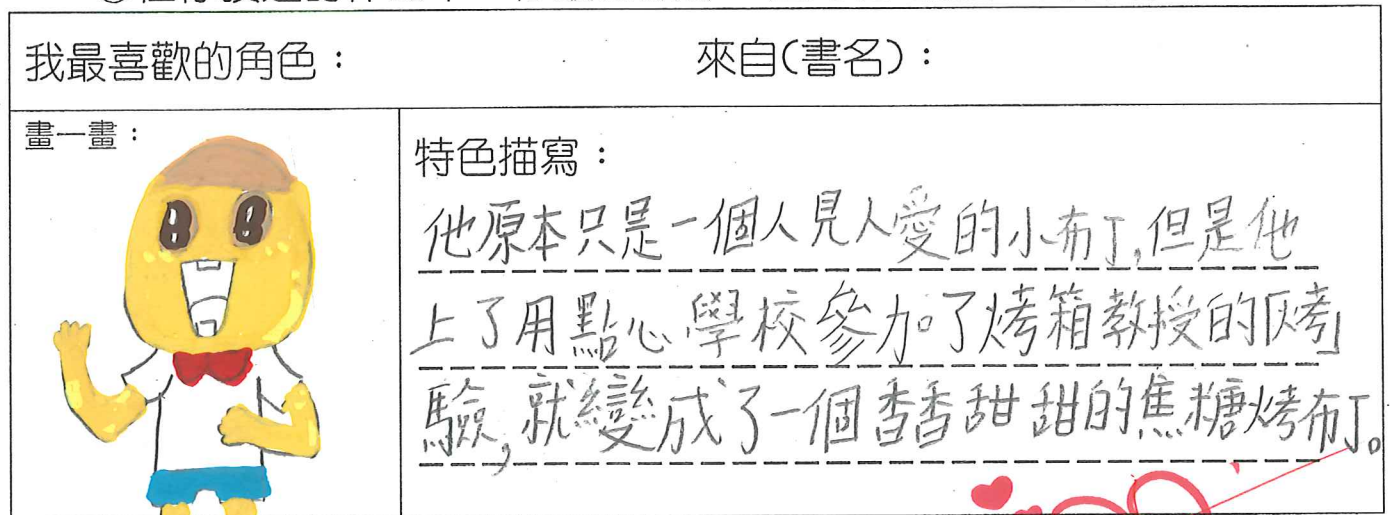 我最喜歡的角色： 來自(書名)：
畫一畫：
特色描寫：
他原本只是一個人見人愛的小布丁,但是他
上了用點心學校參加了烤箱教授的「烤」
驗,就變成了一個香香甜甜的焦糖烤布丁。